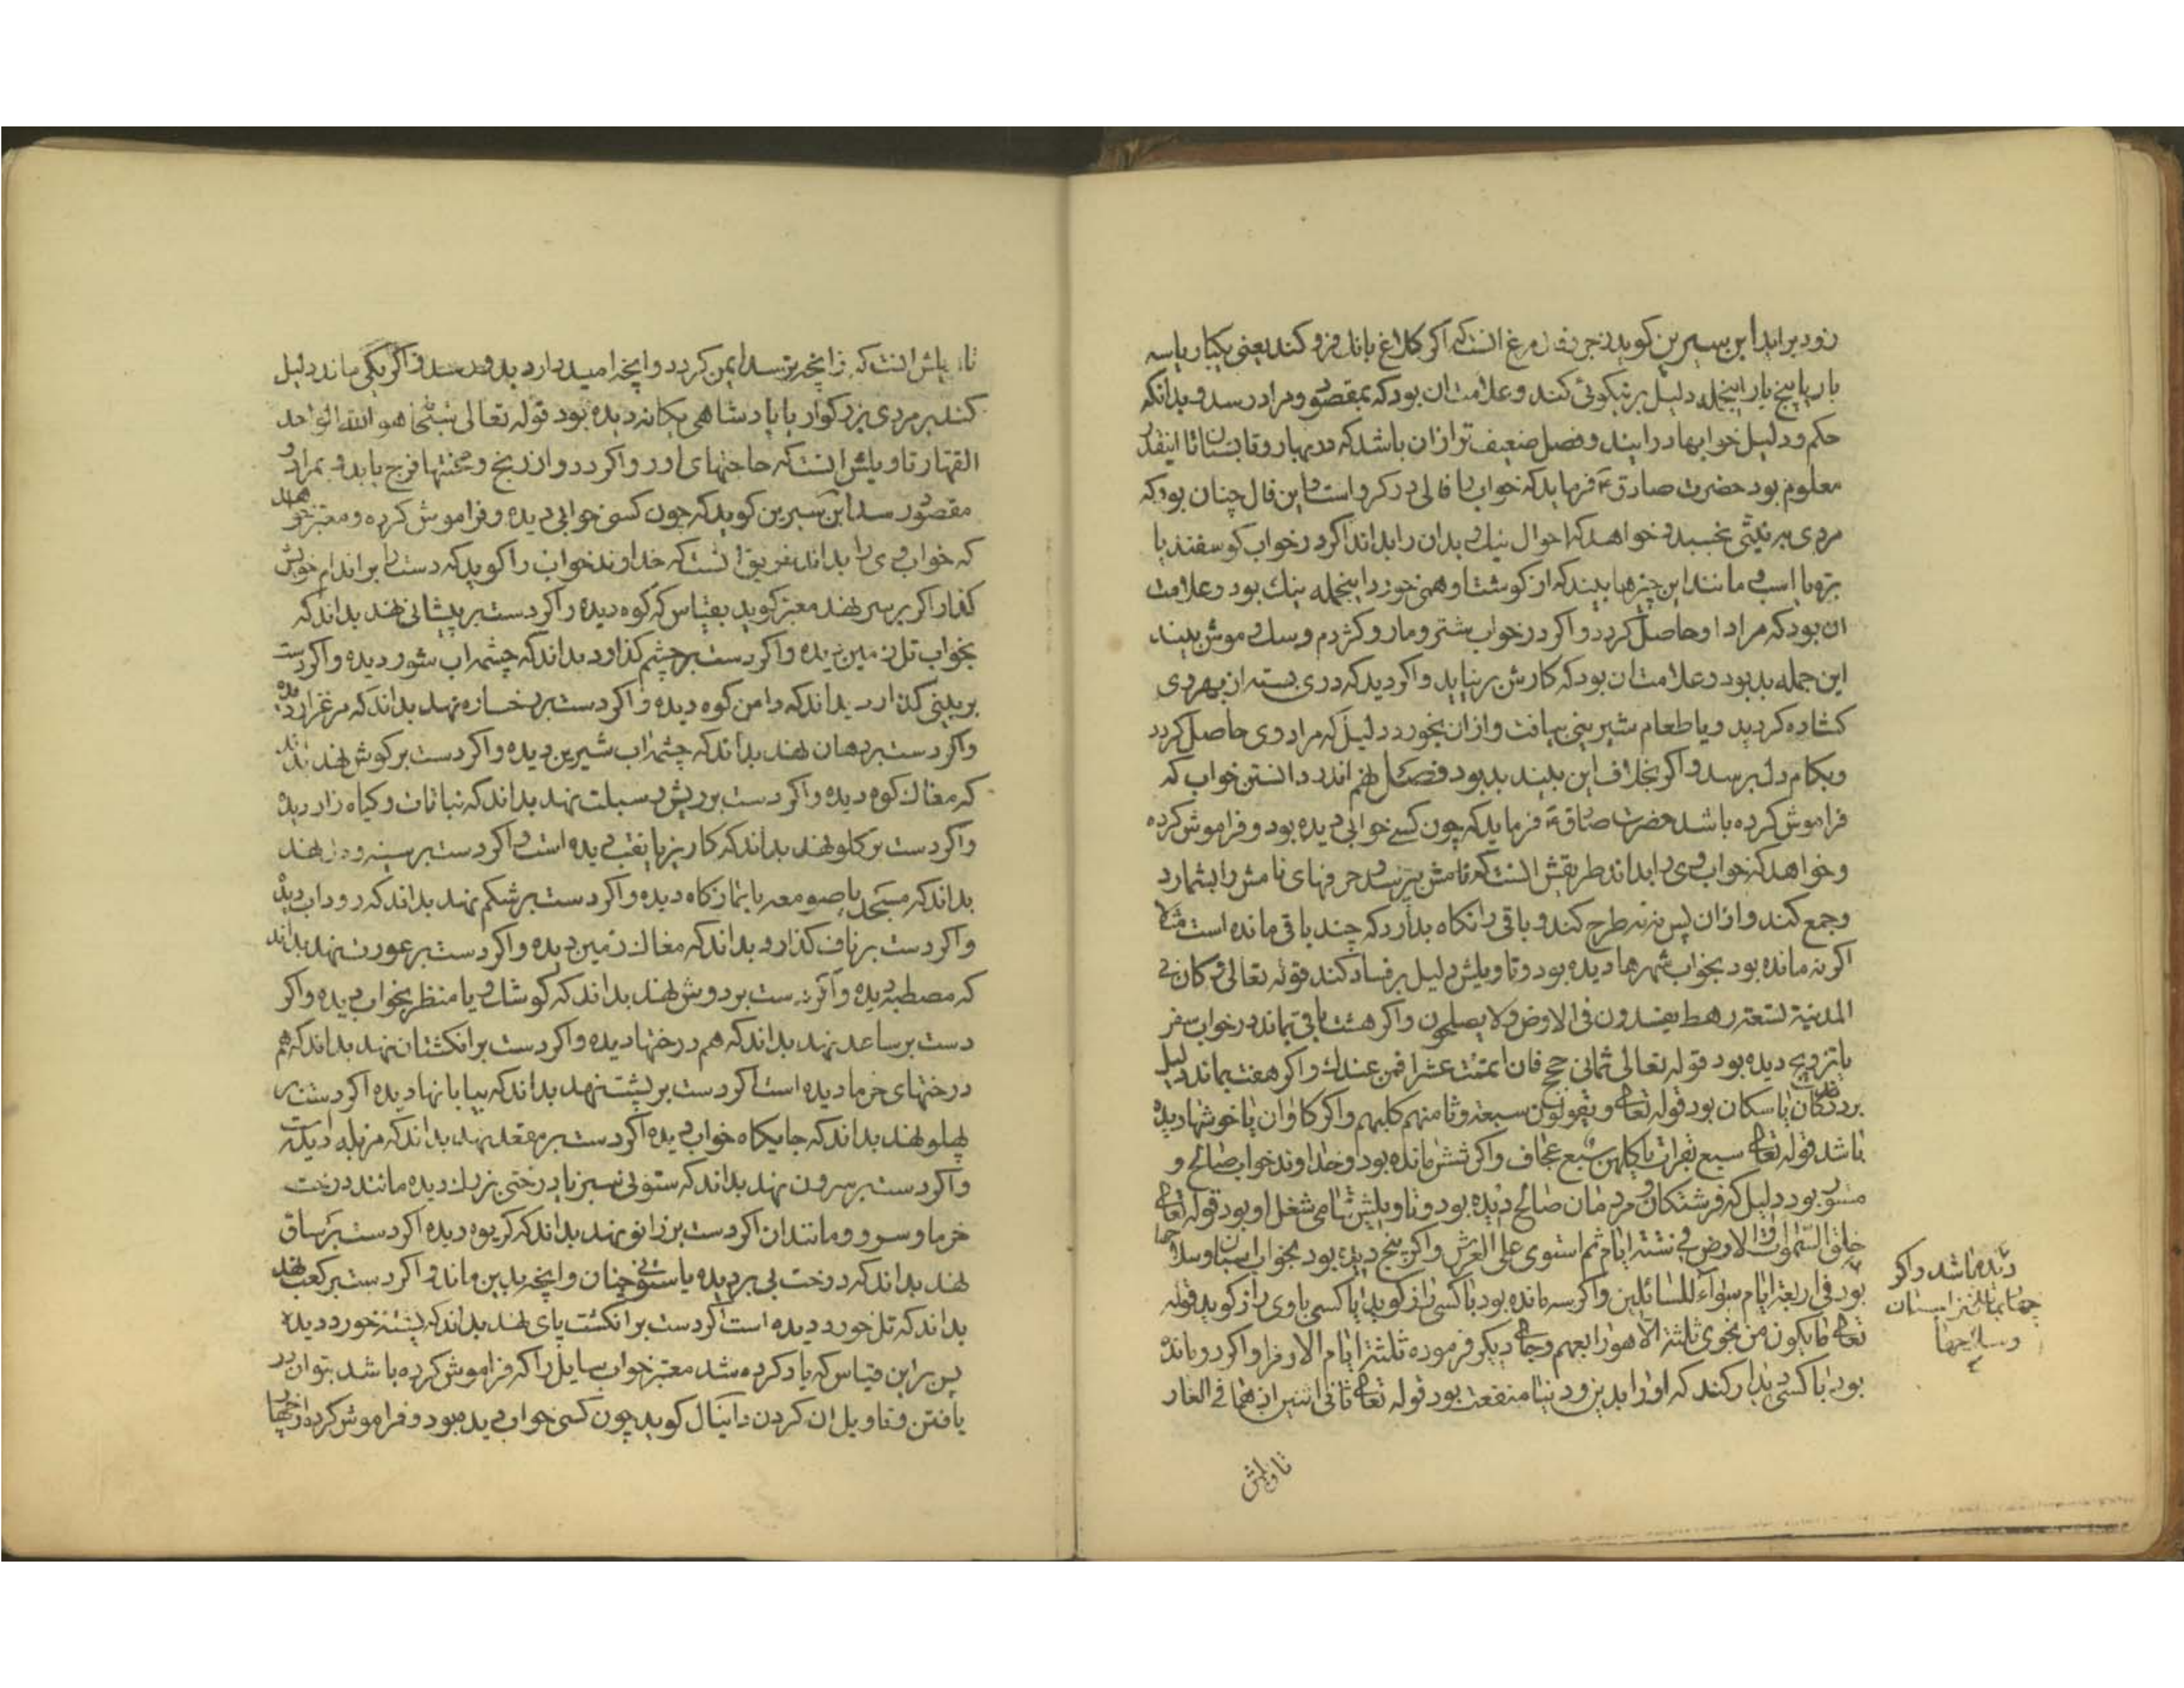 زود برآید ابن سیرین کوید زجر مرغ انست که اکر کلاغ بانک فرو کند یعنی یکبار یا سه
بار یا پنج بار اینجمله دلیل بر نیکوئی کند و علامت ان بود که بمقصود و مراد رسد و بدانکه
حکم و دلیل خوابها در ایند و فصل ضعیف تر از ان باشد که در بهار و تابستان تا اینقدر
معلوم بود حضرت صادق ع فرماید که خواب را فالی در کرو است و این فال چنان بود که
مردی بر نیتی بخسبد و خواهد که احوال نیک و بد ان را بداند اکر در خواب کوسفند یا
بره یا اسب و مانند این چیزها بیند که از کوشت او همی خورد اینجمله نیک بود و علامت
ان بود که مراد او حاصل کردد و اکر در خواب شتر و مار و کژدم و سک و موش بیند
این جمله بد بود و علامت ان بود که کارش بر نیاید و اکر دید که دری بسته از بهر وی
کشاده کردید و یا طعام شیرینی بیافت و از ان بخورد دلیل که مراد وی حاصل کردد
و بکام دل برسد و اکر بخلاف این بیند بد بود فصل نهم اندر دانستن خواب که
فراموش کرده باشد حضرت صادق ع فرماید که چون کسی خوابی دیده بود و فراموش کرده
و خواهد که خواب وی را بداند طریقش انست که نامش بپرسد و حرفهای نامش را بشمارد
و جمع کند و از ان پس نه نه طرح کند و باقی را نکاه بدارد که چند باقی مانده است مثلا
اکر نه مانده بود بخواب شهرها دیده بود و تاویلش دلیل بر فساد کند قوله تعالی و کان فی
المدینة تسعة رهط یفسدون فی الارض و لا یصلحون و اکر هشت باقی بماند در خواب سفر
یا تزویج دیده بود قوله تعالی ثمانی حجج فان اتممت عشرا فمن عندک و اکر هفت بماند دلیل
بر دزدان یا سکان بود قوله تعالی و یقولون سبعة و ثامنهم کلبهم و اکر کاوان یا خوشها دیده
باشد قوله تعالی سبع بقرات یاکلهن سبع عجاف و اکر شش مانده بود و خداوند خواب صالح و
مستور بود دلیل که فرشتکان و مردمان صالح دیده بود و تاویلش تمامی شغل او بود قوله تعالی
خلق السموات و الارض فی ستة ایام ثم استوی علی العرش و اکر پنج دیده بود بخواب اسبان و سلاحها
دیده باشد و اکر
چهار بماند
و سلاحها
بود فی اربعة ایام سواء للسائلین و اکر سه مانده بود با کسی راز کوید یا کسی با وی راز کوید قوله
تعالی ما یکون من نجوی ثلثة الا هو رابعهم و جای دیکر فرموده ثلثة ایام الا رمزا و اکر دو مانده
بود با کسی دیدار کند که او را بدین و دنیا منفعت بود قوله تعالی ثانی اثنین اذ هما فی الغار
تاویلش
تاویلش انست که از انچه ترسد ایمن کردد و انچه امید دارد بدو رسد و اکر یکی ماند دلیل
کند بر مردی بزرکوار یا پادشاهی یکانه دیده بود قوله تعالی سبحانه هو الله الواحد
القهار تاویلش انست که حاجتهای او روا کردد و از رنج و محنتها فرج یابد و بمراد و
مقصود رسد ابن سیرین کوید که چون کسی خوابی دیده و فراموش کرده و معبر خواهد
که خواب وی را بداند طریق انست که خداوند خواب را کوید که دست بر اندام خویش
کذار اکر بر سر نهد معبر کوید بقیاس که کوه دیده و اکر دست بر پیشانی نهد بداند که
بخواب تل زمین دیده و اکر دست بر چشم کذارد بداند که چشمه اب شور دیده و اکر دست
بر بینی کذارد بداند که دامن کوه دیده و اکر دست بر رخساره نهد بداند که مرغزار دیده
و اکر دست بر دهان نهد بداند که چشمه اب شیرین دیده و اکر دست بر کوش نهد بداند
که مغاک کوه دیده و اکر دست بر ریش و سبلت نهد بداند که نباتات و کیاه زار دیده
و اکر دست بر کلو نهد بداند که کاریز یا نقب دیده است و اکر دست بر سینه و دل نهد
بداند که مسجد یا صومعه یا نمازکاه دیده و اکر دست بر شکم نهد بداند که رود اب دیده
و اکر دست بر ناف کذارد بداند که مغاک زمین دیده و اکر دست بر عورت نهد بداند
که مصطبه دیده و اکر دست بر دوش نهد بداند که کوشک و یا منظر بخواب دیده و اکر
دست بر ساعد نهد بداند که هم درختها دیده و اکر دست بر انکشتان نهد بداند که هم
درختهای خرما دیده است اکر دست بر پشت نهد بداند که بیابانها دیده اکر دست بر
پهلو نهد بداند که جایکاه خواب دیده اکر دست بر مقعد نهد بداند که مزبله دیده
و اکر دست بر سرون نهد بداند که ستونی سبز یا درختی بزرک دیده مانند درخت
خرما و سرو و مانند ان اکر دست بر زانو نهد بداند که کریوه دیده اکر دست بر ساق
نهد بداند که درخت بی بر دیده یا ستونی چنان و انچه بدین ماند و اکر دست بر کعب نهد
بداند که تل خورد دیده است اکر دست بر انکشت پای نهد بداند که پشته خورد دیده
پس بر این قیاس که یاد کرده شد معبر خواب سایل را که فراموش کرده باشد بتواند
یافتن و تاویل ان کردن دانیال کوید چون کسی خواب دیده بود و فراموش کرده